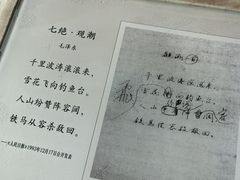 七绝·观潮
毛泽东
千里波涛滚滚来，
雪花飞向钓鱼台。
人山纷赞阵容阔，
铁马从容杀敌回。
《人民日报》1993年12月17日公开发表
观潮
千里波涛滚滚来，
雪花飞向钓鱼台。
人山
阵容阔
铁马从容杀敌回。